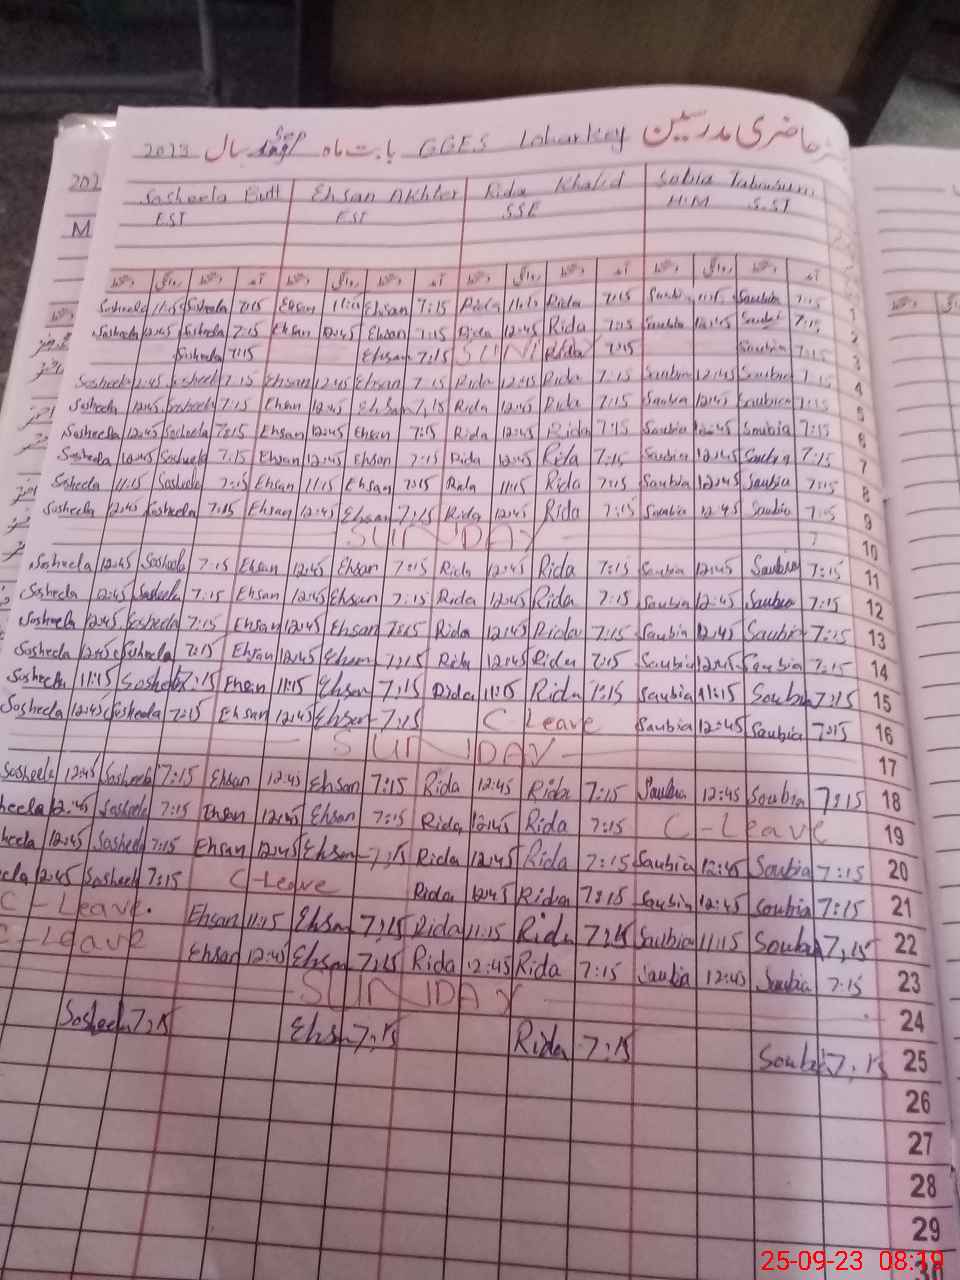 حاضری مدرسین GGES Loharkey بابت ماه Sep سال 2023
Sosheela Butt Ehsan Akhter Rida Khalid Sobia
EST EST SSE H.M S.ST
دستخط روانگی دستخط آمد دستخط روانگی دستخط آمد دستخط روانگی دستخط آمد دستخط روانگی دستخط آمد
Sosheela 11:15 Sosheela 7:15 Ehsan 11:15 Ehsan 7:15 Rida 11:15 Rida 7:15 Saubia 11:15 Saubia 7:15 1
Sosheela 12:45 Sosheela 7:15 Ehsan 12:45 Ehsan 7:15 Rida 12:45 Rida 7:15 Saubia 12:45 Saubia 7:15 2
Sosheela 7:15 Ehsan 7:15 SUN Rida 7:15 Saubia 7:15 3
Sosheela 12:45 Sosheela 7:15 Ehsan 12:45 Ehsan 7:15 Rida 12:45 Rida 7:15 Saubia 12:45 Saubia 7:15 4
Sosheela 12:45 Sosheela 7:15 Ehsan 12:45 Ehsan 7:15 Rida 12:45 Rida 7:15 Saubia 12:45 Saubia 7:15 5
Sosheela 12:45 Sosheela 7:15 Ehsan 12:45 Ehsan 7:15 Rida 12:45 Rida 7:15 Saubia 12:45 Saubia 7:15 6
Sosheela 12:45 Sosheela 7:15 Ehsan 12:45 Ehsan 7:15 Rida 12:45 Rida 7:15 Saubia 12:45 Saubia 7:15 7
Sosheela 11:15 Sosheela 7:15 Ehsan 11:15 Ehsan 7:15 Rida 11:15 Rida 7:15 Saubia 12:45 Saubia 7:15 8
Sosheela 12:45 Sosheela 7:15 Ehsan 12:45 Ehsan 7:15 Rida 12:45 Rida 7:15 Saubia 12:45 Saubia 7:15 9
SUNDAY 10
Sosheela 12:45 Sosheela 7:15 Ehsan 12:45 Ehsan 7:15 Rida 12:45 Rida 7:15 Saubia 12:45 Saubia 7:15 11
Sosheela 12:45 Sosheela 7:15 Ehsan 12:45 Ehsan 7:15 Rida 12:45 Rida 7:15 Saubia 12:45 Saubia 7:15 12
Sosheela 12:45 Sosheela 7:15 Ehsan 12:45 Ehsan 7:15 Rida 12:45 Rida 7:15 Saubia 12:45 Saubia 7:15 13
Sosheela 12:45 Sosheela 7:15 Ehsan 12:45 Ehsan 7:15 Rida 12:45 Rida 7:15 Saubia 12:45 Saubia 7:15 14
Sosheela 11:15 Sosheela 7:15 Ehsan 11:15 Ehsan 7:15 Rida 11:15 Rida 7:15 Saubia 11:15 Soubia 7:15 15
Sosheela 12:45 Sosheela 7:15 Ehsan 12:45 Ehsan 7:15 C Leave Saubia 12:45 Saubia 7:15 16
SUNDAY 17
Sosheela 12:45 Sosheela 7:15 Ehsan 12:45 Ehsan 7:15 Rida 12:45 Rida 7:15 Saubia 12:45 Soubia 7:15 18
heela 12:45 Sosheela 7:15 Ehsan 12:45 Ehsan 7:15 Rida 12:45 Rida 7:15 C-Leave 19
eela 12:45 Sosheela 7:15 Ehsan 12:45 Ehsan 7:15 Rida 12:45 Rida 7:15 Saubia 12:45 Saubia 7:15 20
ela 12:45 Sosheela 7:15 C-Leave Rida 12:45 Rida 7:15 Saubia 12:45 Soubia 7:15 21
C-Leave. Ehsan 11:15 Ehsan 7:15 Rida 11:15 Rida 7:15 Saubia 11:15 Soubia 7:15 22
C-Leave Ehsan 12:45 Ehsan 7:15 Rida 12:45 Rida 7:15 Saubia 12:45 Saubia 7:15 23
SUNDAY 24
Sosheela 7:15 Ehsan 7:15 Rida 7:15 Soubia 7:15 25
26
27
28
29
30
25-09-23 08:19